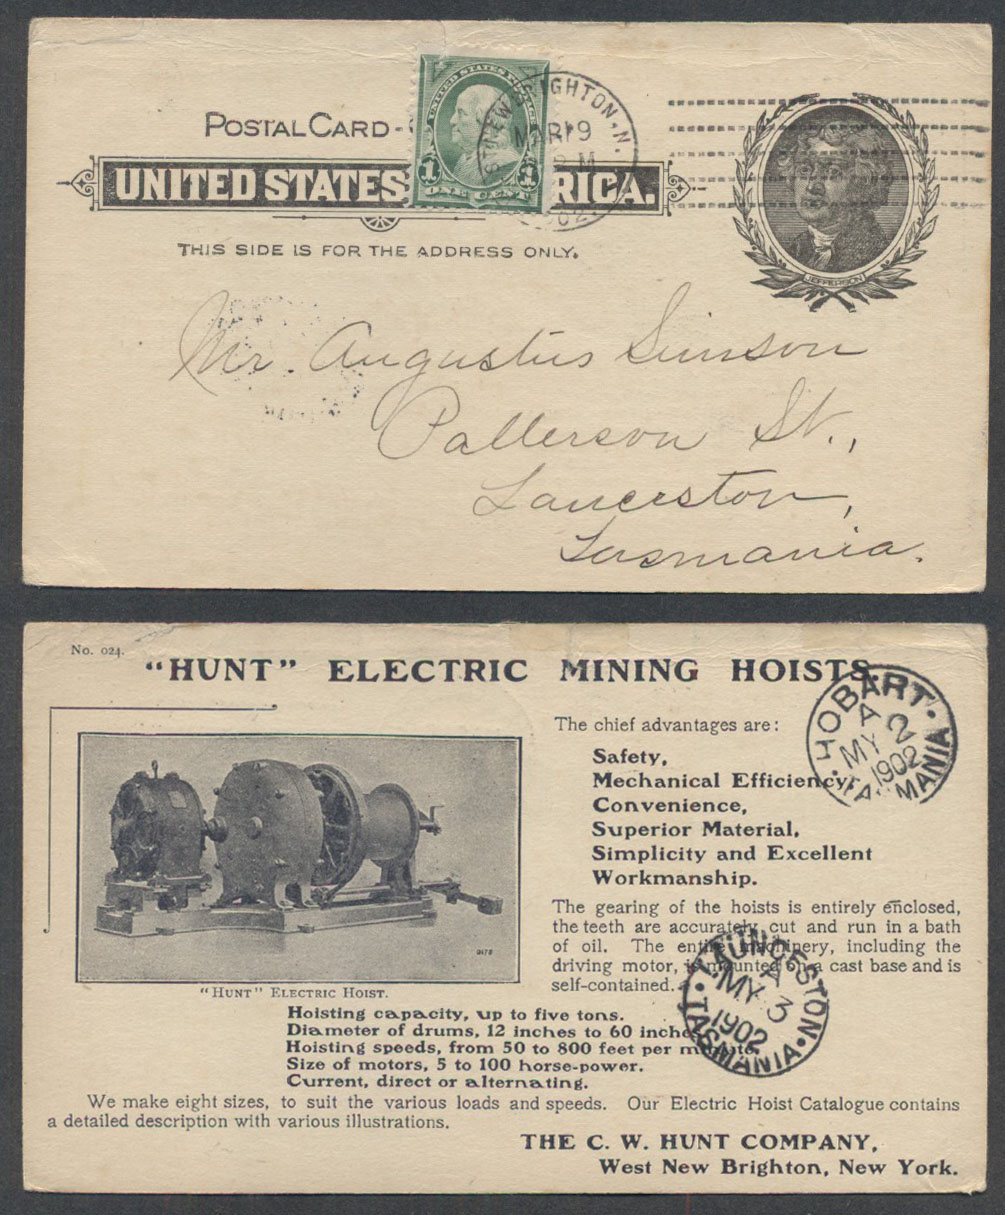 POSTAL CARD -
UNITED STATES RICA.
THIS SIDE IS FOR THE ADDRESS ONLY.
UNITED STATES
1 1
ONE CENT
NEW BRIGHTON. N.
MAR 19
M
1902
JEFFERSON
Mr. Augustus Simson
Patterson St.,
Lanceston,
Tasmania.
No. 024.
"HUNT" ELECTRIC MINING HOISTS.
The chief advantages are:
Safety,
Mechanical Efficiency,
Convenience,
Superior Material,
Simplicity and Excellent
Workmanship.
HOBART
A
MY 2
1902
TASMANIA
The gearing of the hoists is entirely enclosed,
the teeth are accurately cut and run in a bath
of oil. The entire machinery, including the
driving motor, is mounted on a cast base and is
self-contained.
LAUNCESTON
A
MY 3
1902
TASMANIA
"HUNT" ELECTRIC HOIST.
Hoisting capacity, up to five tons.
Diameter of drums, 12 inches to 60 inches.
Hoisting speeds, from 50 to 800 feet per minute.
Size of motors, 5 to 100 horse-power.
Current, direct or alternating.
We make eight sizes, to suit the various loads and speeds. Our Electric Hoist Catalogue contains
a detailed description with various illustrations.
THE C. W. HUNT COMPANY,
West New Brighton, New York.